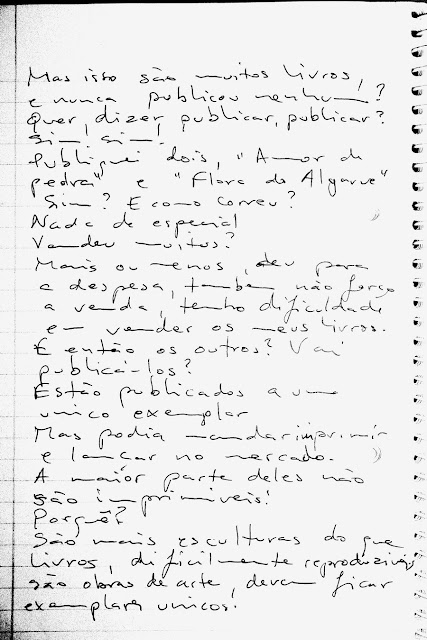 Mas isso são muitos livros,
e nunca publicou nenhum?
Quer dizer, publicar, publicar?
Sim, sim!
Publiquei dois, "Amor de
pedra" e "Flora do Algarve"
Sim? E como correu?
Nada de especial
Vendeu muitos?
Mais ou menos, deu para
a despesa, também não forço
a venda, tenho dificuldade
em vender os meus livros.
E então os outros? Vai
publicá-los?
Estão publicados a um
unico exemplar
Mas podia mandar imprimir
e lançar no mercado.
A maior parte deles não
são imprimiveis!
Porquê?
São mais esculturas do que
livros, dificilmente reproduziveis,
são obras de arte, devem ficar
exemplares unicos.